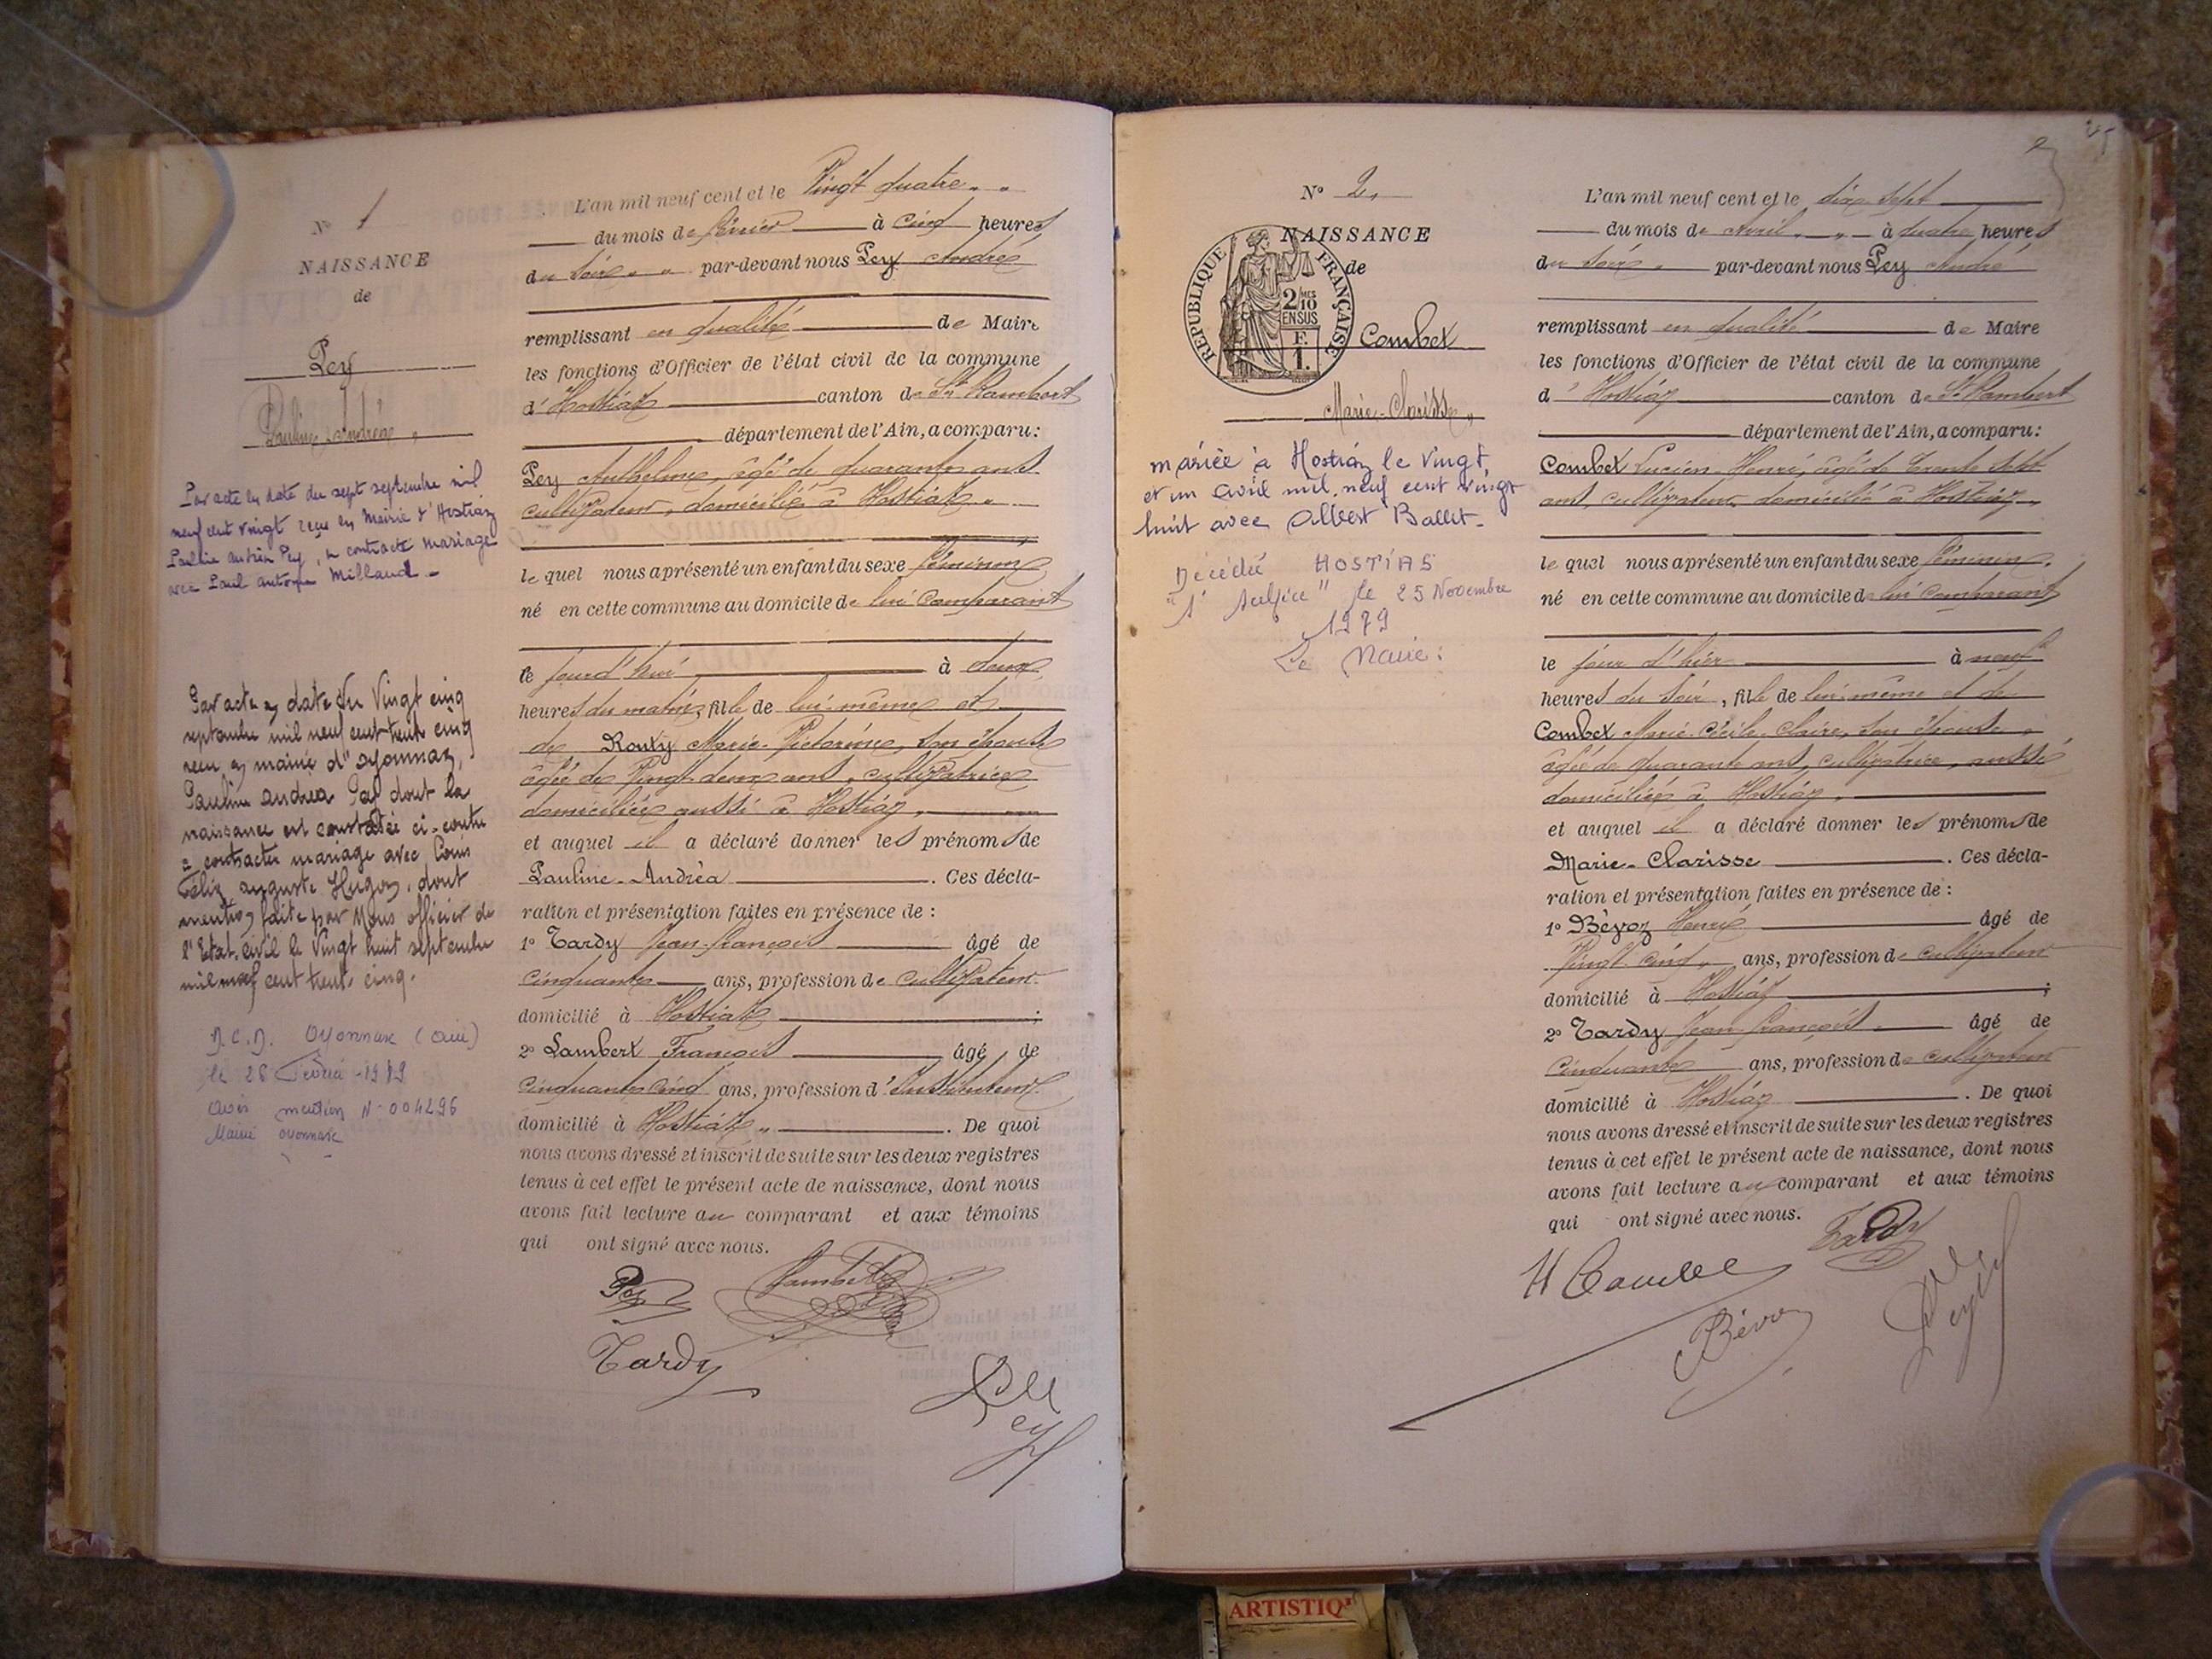 Nº 1
NAISSANCE
de
Pey
Pauline Andréa
Par acte en date du sept septembre mil
neuf cent vingt reçu en Mairie d'Hostiaz
Pauline Andréa Pey, a contracté mariage
avec Paul Antoine Millaud
Par acte en date du Vingt cinq
septembre mil neuf cent trente cinq
reçu en mairie d'Oyonnax,
Pauline Andréa Pey dont la
naissance est constatée ci-contre
a contracté mariage avec Louis
Félix Auguste Hugon, dont
mention faite par Nous officier de
l'Etat civil le Vingt huit septembre
mil neuf cent trente cinq.
Oyonnax (Ain)
Avis mention N° 004296
Mairie Oyonnax
L'an mil neuf cent et le Vingt quatre
du mois de février à cinq heures
du soir par-devant nous Pey André
remplissant en qualité de Maire
les fonctions d'Officier de l'état civil de la commune
d'Hostiaz canton de St Rambert
département de l'Ain, a comparu:
Pey Anthelme, âgé de quarante ans
cultivateur, domicilié à Hostiaz
le quel nous a présenté un enfant du sexe féminin
né en cette commune au domicile de lui comparant
le jourd'hui à deux
heures du matin, fille de lui-même et
de Rouxy Marie-Victorine, son épouse
âgée de Vingt deux ans, cultivatrice
domiciliée aussi à Hostiaz,
et auquel il a déclaré donner les prénoms de
Pauline-Andréa. Ces décla-
ration et présentation faites en présence de :
1º Tardy Jean-François âgé de
cinquante ans, profession de cultivateur
domicilié à Hostiaz;
2º Lambert François âgé de
cinquante cinq ans, profession d'Instituteur
domicilié à Hostiaz. De quoi
nous avons dressé et inscrit de suite sur les deux registres
tenus à cet effet le présent acte de naissance, dont nous
avons fait lecture au comparant et aux témoins
qui ont signé avec nous.
Pey Lambert
Tardy
Pey
2
Nº 2
NAISSANCE
de
REPUBLIQUE FRANÇAISE
2/10 MES
EN SUS
F.
1.
Combet
Marie-Clarisse
mariée à Hostiaz le vingt
et un avril mil neuf cent vingt
huit avec Albert Ballet
Décédée HOSTIAS
le 25 Novembre
1979
Le Maire:
L'an mil neuf cent et le dix sept
du mois de Avril à quatre heures
du soir par-devant nous Pey André
remplissant en qualité de Maire
les fonctions d'Officier de l'état civil de la commune
d'Hostiaz canton de St Rambert
département de l'Ain, a comparu:
Combet Lucien-Henri, âgé de trente sept
ans, cultivateur domicilié à Hostiaz
le quel nous a présenté un enfant du sexe féminin,
né en cette commune au domicile de lui comparant
le jour d'hier à neuf
heures du soir, fille de lui-même et de
Combet Marie-Cécile-Claire, son épouse
âgée de quarante ans, cultivatrice, aussi
domiciliée à Hostiaz,
et auquel il a déclaré donner les prénoms de
Marie-Clarisse. Ces décla-
ration et présentation faites en présence de :
1º Bévoz Henri âgé de
Vingt cinq ans, profession de cultivateur
domicilié à Hostiaz;
2º Tardy Jean François âgé de
cinquante ans, profession de cultivateur
domicilié à Hostiaz. De quoi
nous avons dressé et inscrit de suite sur les deux registres
tenus à cet effet le présent acte de naissance, dont nous
avons fait lecture au comparant et aux témoins
qui ont signé avec nous.
Tardy
H Combet
Bévoz
Pey
ARTISTIQ